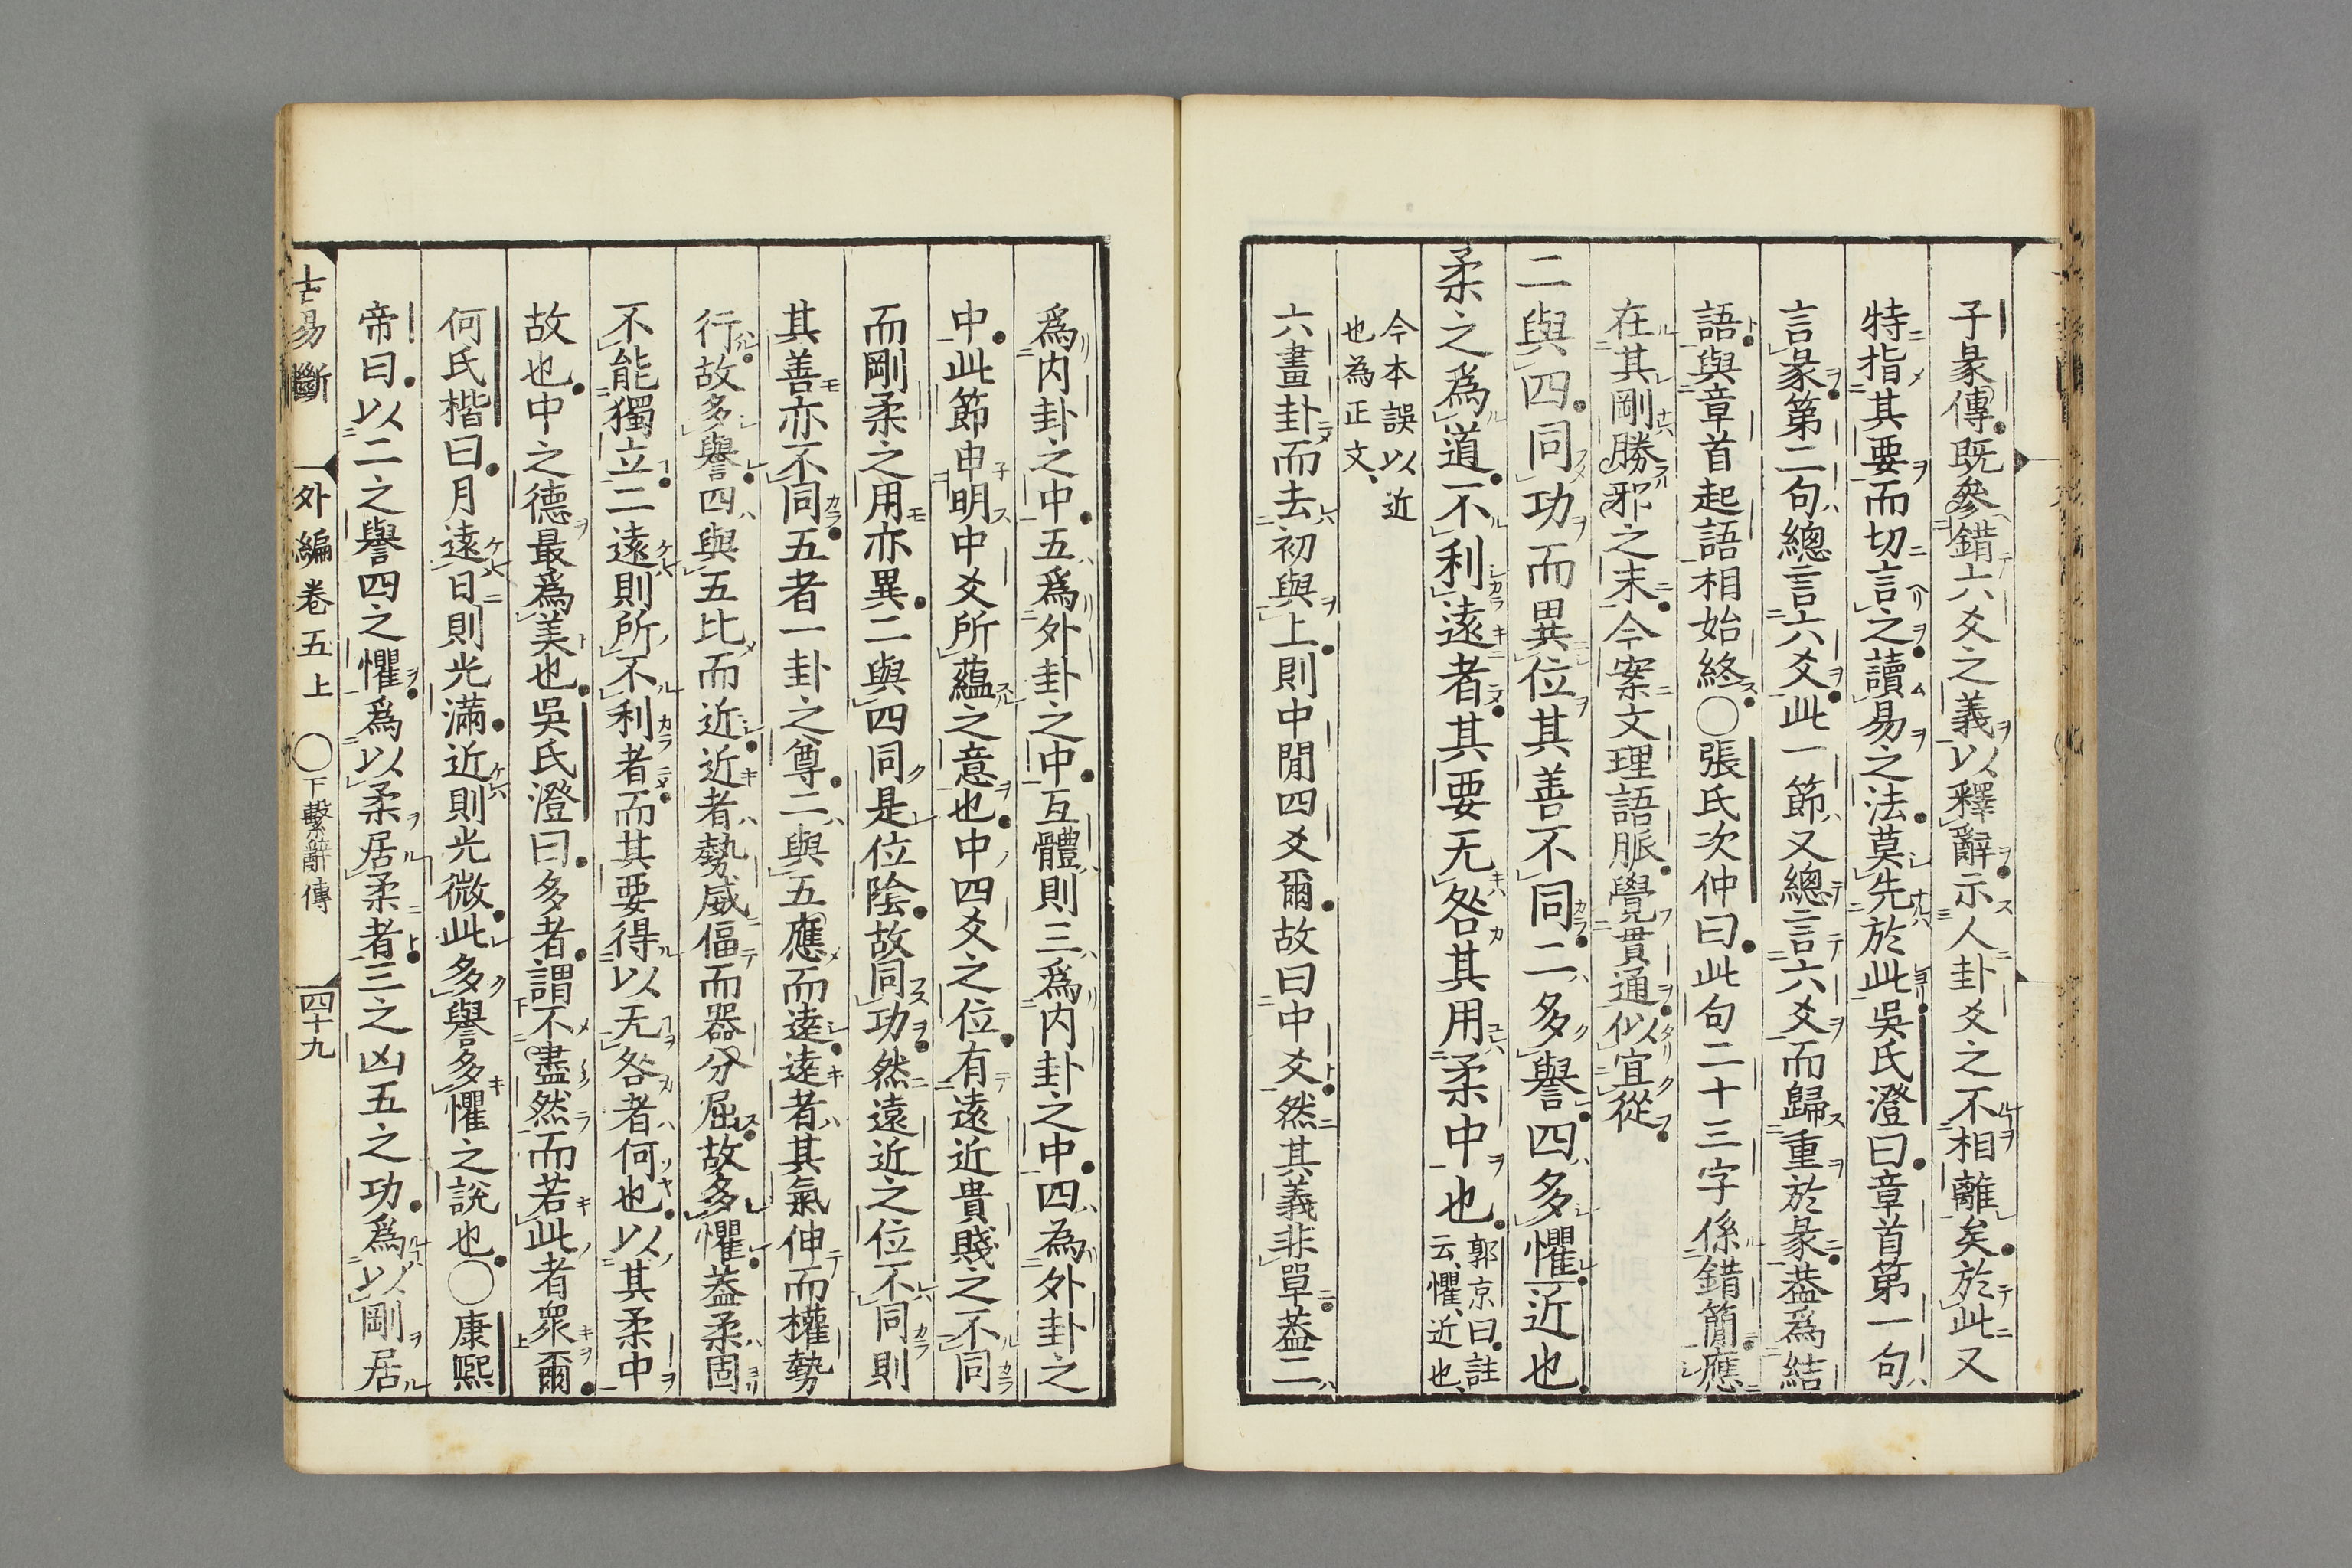 子彖傳既參錯六爻之義以釋辭示人卦爻之不相離矣於此又
特指其要而切言之讀易之法莫先於此吳氏澄曰章首第一句
言彖第二句總言六爻此一節又總言六爻而歸重於彖葢爲結
語與章首起語相始終○張氏次仲曰此句二十三字係錯簡應
在其剛勝邪之末今案文理語脈覺貫通似宜從
二與四同功而異位其善不同二多譽四多懼近也
柔之爲道不利遠者其要无咎其用柔中也郭京曰註
云懼近也
今本誤以近
也為正文
六畫卦而去初與上則中閒四爻爾故曰中爻然其義非單葢二
爲内卦之中五爲外卦之中互體則三爲内卦之中四為外卦之
中此節申明中爻所蘊之意也中四爻之位有遠近貴賤之不同
而剛柔之用亦異二與四同是位陰故同功然遠近之位不同則
其善亦不同五者一卦之尊二與五應而遠遠者其氣伸而權勢
行故多譽四與五比而近近者勢威偪而器分屈故多懼葢柔固
不能獨立二遠則所不利者而其要得以无咎者何也以其柔中
故也中之德最爲美也吳氏澄曰多者謂不盡然而若此者衆爾
何氏楷曰月遠日則光滿近則光微此多譽多懼之說也○康熙
帝曰以二之譽四之懼爲以柔居柔者三之凶五之功爲以剛居
古易斷　外編卷五上　○下繫辭傳　四十九